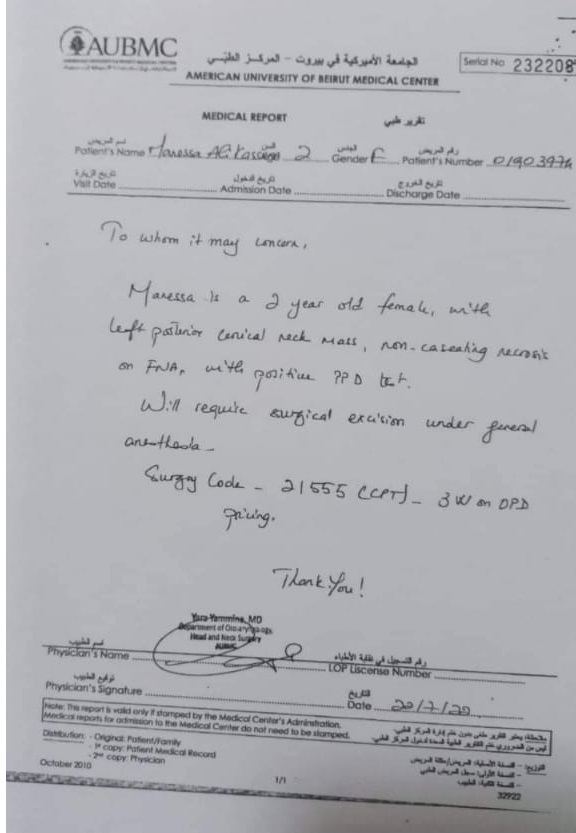 AUBMC
الجامعة الأميركية في بيروت - المركز الطبي
AMERICAN UNIVERSITY OF BEIRUT MEDICAL CENTER
Serial No 232208
MEDICAL REPORT تقرير طبي
اسم المريض السن الجنس رقم المريض
Patient's Name Maressa Ali 2 Gender F Patient's Number 0190397
تاريخ الزيارة تاريخ الدخول تاريخ الخروج
Visit Date Admission Date Discharge Date
To whom it may concern,
Maressa is a 2 year old female, with
left posterior cervical neck mass, non-caseating necrosis
on FNA, with positive PPD test.
Will require surgical excision under general
anesthesia_
Surgery Code - 21555 (CPT) - 3W on OPD
pricing.
Thank You!
Yara Yammine, MD
Department of Otolaryngology
Head and Neck Surgery
AUBMC
اسم الطبيب رقم التسجيل في نقابة الأطباء
Physician's Name LOP Liscense Number
توقيع الطبيب التاريخ
Physician's Signature Date 20/7/20
Note: This report is valid only if stamped by the Medical Center's Adminstration.
Medical reports for admission to the Medical Center do not need to be stamped.
ملاحظة: يعتبر التقرير ملغى بدون ختم إدارة المركز الطبي.
ليس من الضروري ختم التقارير الطبية المعدة لدخول المركز الطبي.
Distribution: - Original: Patient/Family
- 1st copy: Patient Medical Record
- 2nd copy: Physician
التوزيع: - النسخة الأصلية: المريض/عائلة المريض
- النسخة الأولى: سجل المريض الطبي
- النسخة الثانية: الطبيب
October 2010
1/1
32922